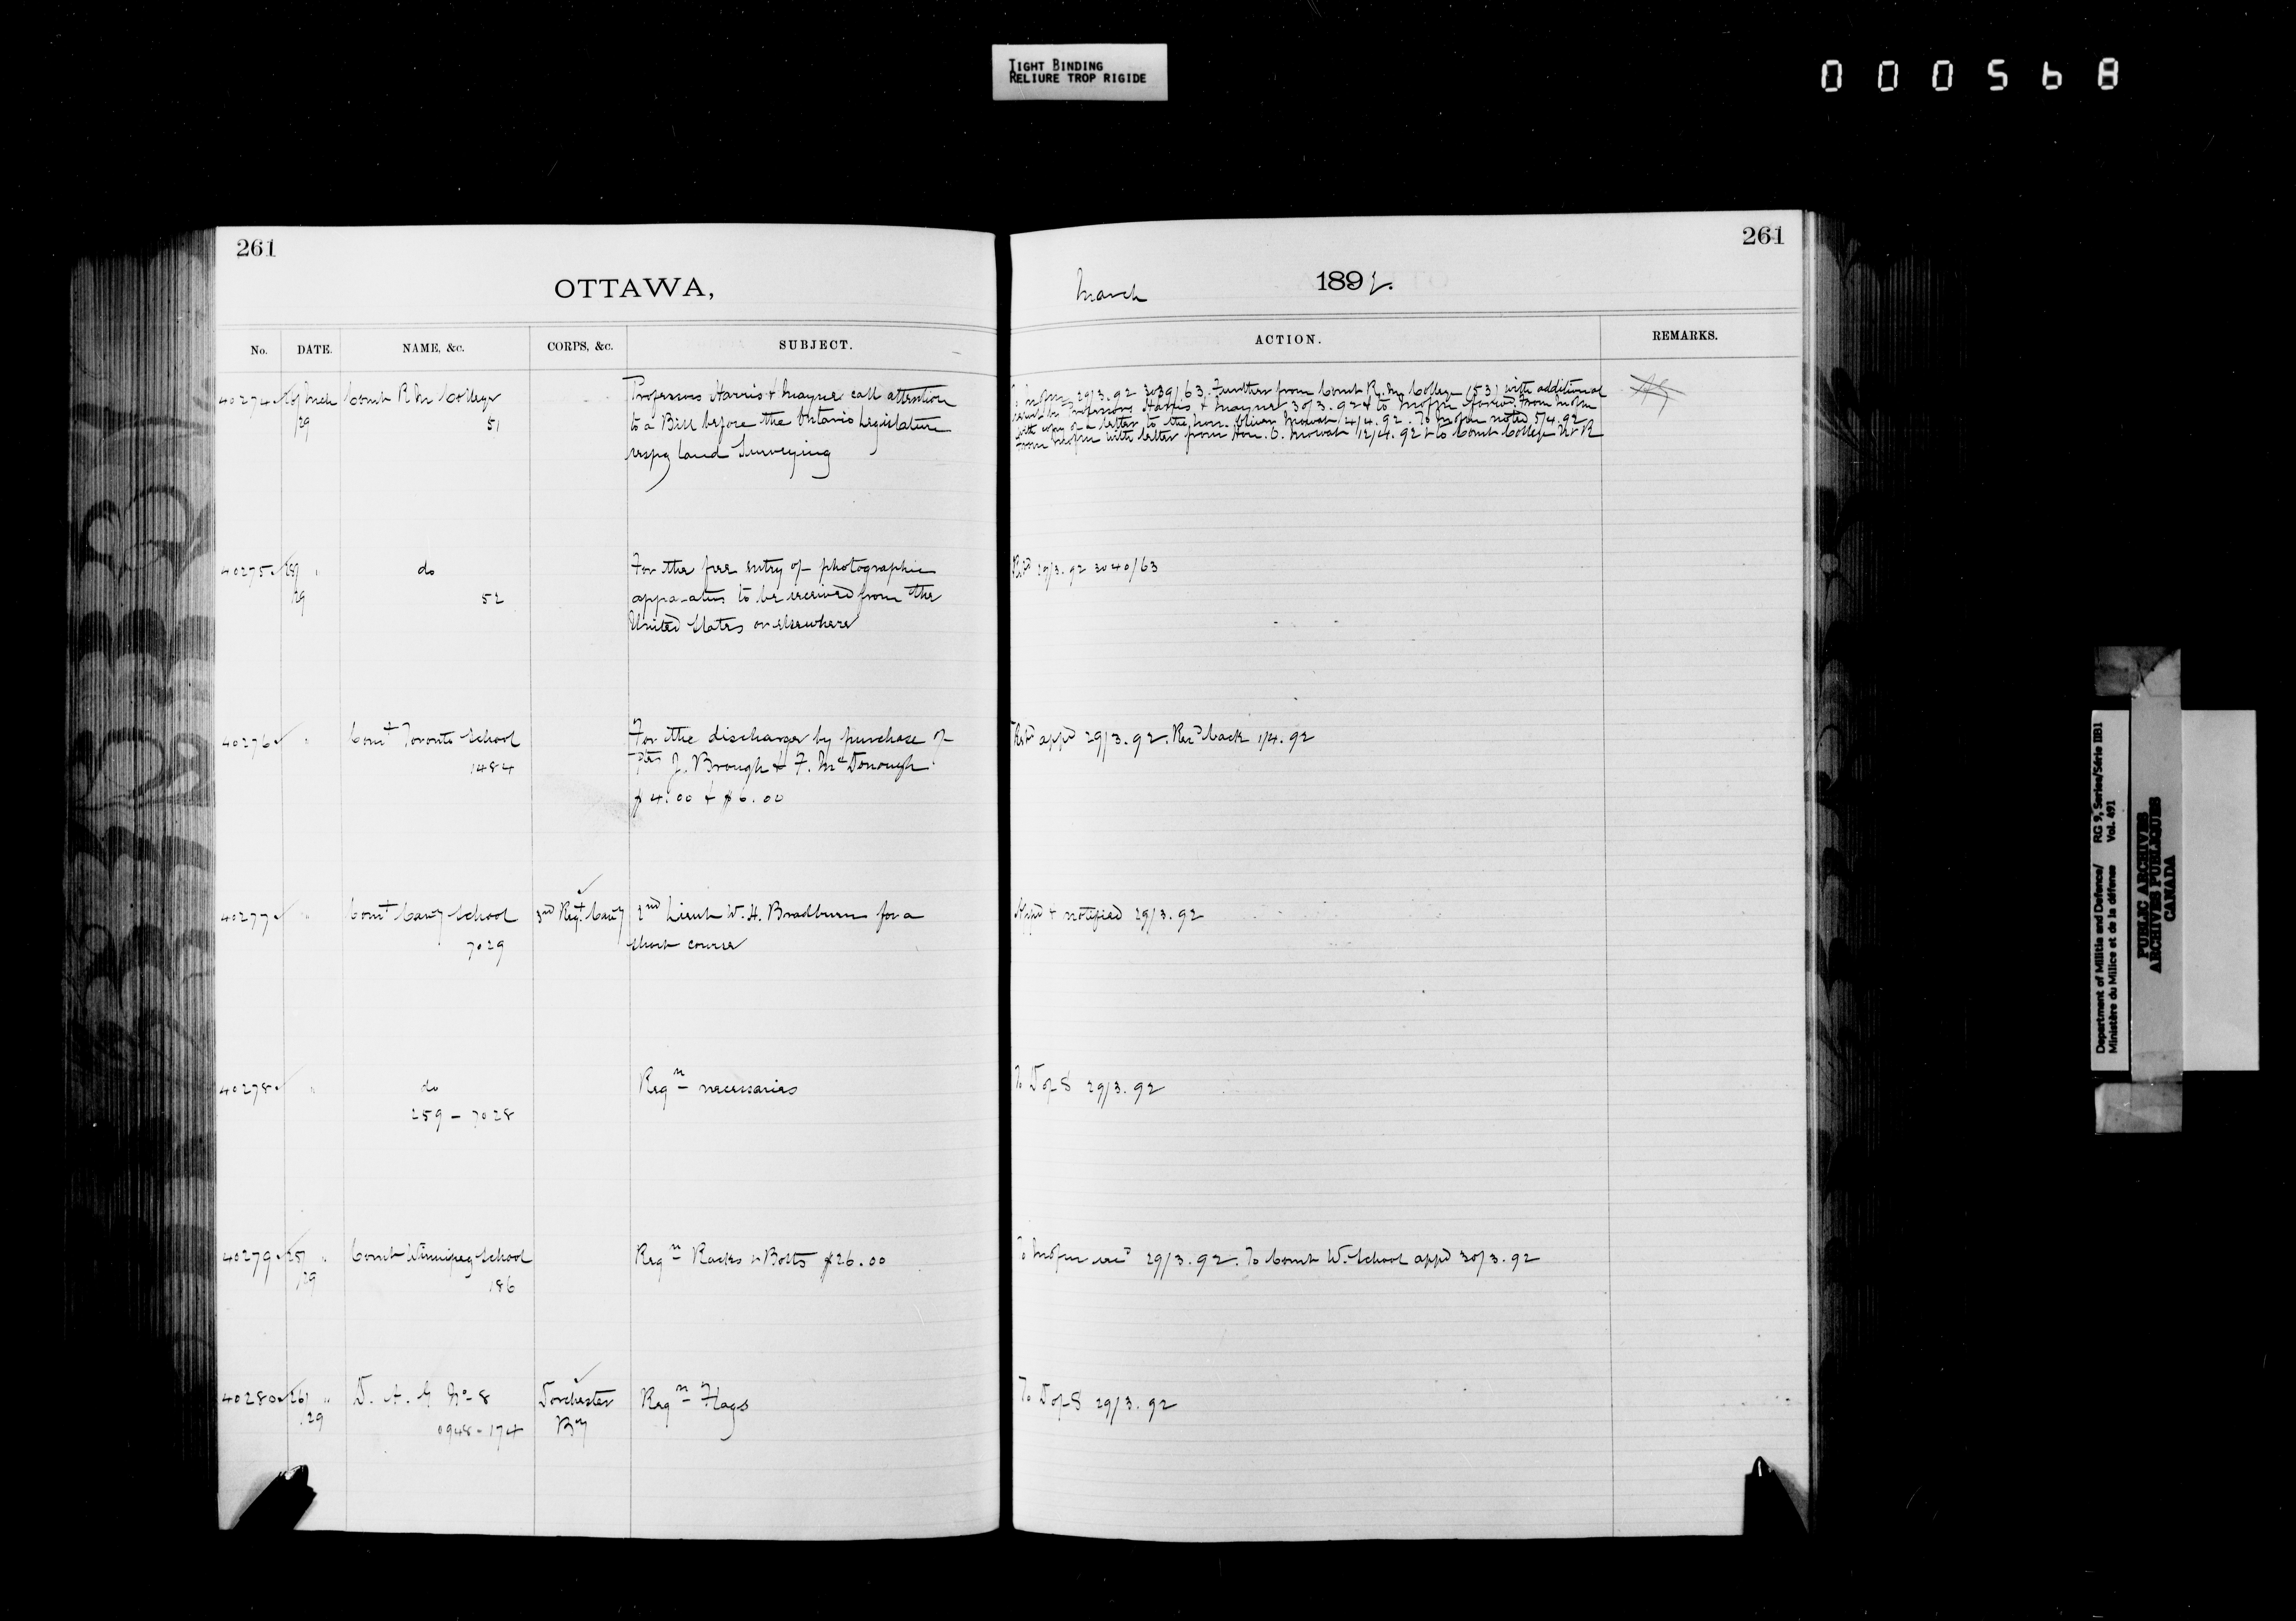 TIGHT BINDING
RELIURE TROP RIGIDE
000568
261
OTTAWA,
No. DATE. NAME, &c. CORPS, &c. SUBJECT.
40274 26 Mch Comt R M College Professors Harris & Mayne call attention
/29 51 to a Bill before the Ontario Legislature
respg land Surveying
40275 do For the free entry of photographic
29 52 apparatus to be received from the
United States or elsewhere
40276 " Comt Toronto School For the discharge by purchase of
1484 Ptes J. Brough & F. McDonough
$4.00 & $6.00
40277 " Comt Cavy School 3rd Regt Cavy 2nd Lieut W. H. Bradburn for a
7029 short course
40278 " do Reqn necessaries
259 - 7028
40279 25 " Comt Winnipeg School Reqn Racks & Bolts $26.00
/29 186
40280 26 " D. A. G No 8 Dorchester Reqn Flags
/29 0948-174 By
261
March 1892.
ACTION. REMARKS.
29/3.92 3039/63. Further from Comt R. M. College (53) with additional
Professors Harris & Mayne 30/3.92 & to
with copy of a letter to the Hon. Oliver Mowat 2/4.92. To noted 5/4.92
From with letter from Hon. O. Mowat 12/4.92 & to Comt College
29/3.92 3040/63
appd 29/3.92. Recd back 1/4.92
Appd & notified 29/3.92
To D of S 29/3.92
To 29/3.92. To Comt W. School appd 30/3.92
To D of S 29/3.92
Department of Militia and Defence/ RG 9, Series/Série IIB1
Ministère du Milice et de la défense Vol. 491
PUBLIC ARCHIVES
ARCHIVES PUBLIQUES
CANADA